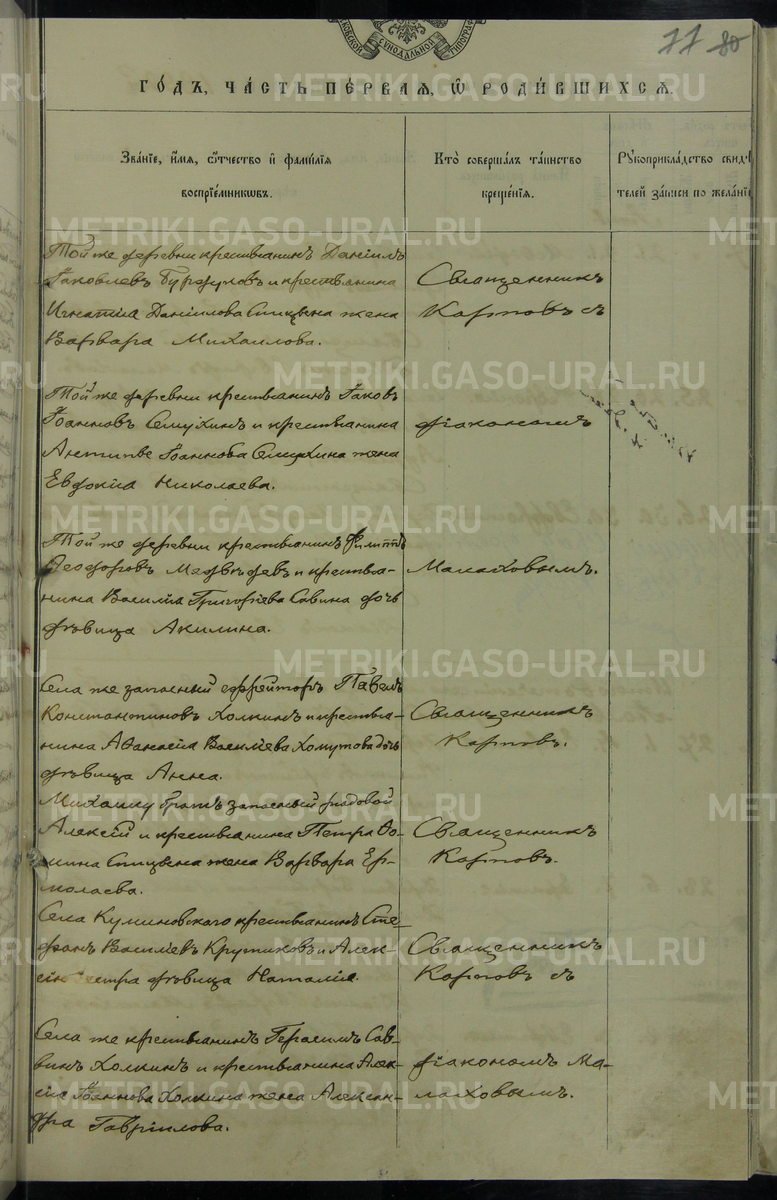 77 80
МОСКОВСКОЙ СѴНОДАЛЬНОЙ ТИПОГРАФ
ГО́ДЪ, ЧА́СТЬ ПЕ́РВАЯ, Ѡ҆ РОДИ́ВШИХСѦ.
Зва́нїе, и҆́мѧ, ѻ҆́тчество и҆ фамı́лїѧ
воспрїе́мникѡвъ.
Кто̀ соверша́лъ та́инство
креще́нїѧ.
Рꙋкоприкла́дство свидѣ
телей за́писи по жела́нїю
Той же деревни крестьянинъ Данiилъ
Iаковлевъ и крестьянина
Игнатiа Данiилова Спицына жена
Варвара Михаилова.
Священникъ
Карповъ съ
Той же деревни крестьянинъ Iаковъ
Iоанновъ Семухинъ и крестьянина
Iоаннова Семухина жена
Евдокiа Николаева.
дiакономъ
Той же деревни крестьянинъ Филиппъ
Ѳеодоровъ Медвѣдевъ и крестья-
нина Василiа Григорiева Савина дочь
дѣвица Акилина.
Малаховымъ.
Села же запасный ефрейторъ Павелъ
Константиновъ Холкинъ и крестья-
нина Аѳанасiа Василiева Хомутова дочь
дѣвица Анна.
Священникъ
Карповъ.
братъ запасный рядовой
Алексiй и крестьянина Петра Ѳо-
мина Спицына жена Варвара Ер-
молаева.
Священникъ
Карповъ.
Села Куминовскаго крестьянинъ Сте-
фанъ Василiевъ Крутиковъ и Алек-
сестра дѣвица Наталiа.
Священникъ
Карповъ съ
Села же крестьянинъ Герасимъ Сав-
винъ Холкинъ и крестьянина Алек-
сiа Iоаннова Холкина жена Алексан-
дра Гаврiилова.
дiакономъ Ма-
лаховымъ.
METRIKI.GASO-URAL.RU